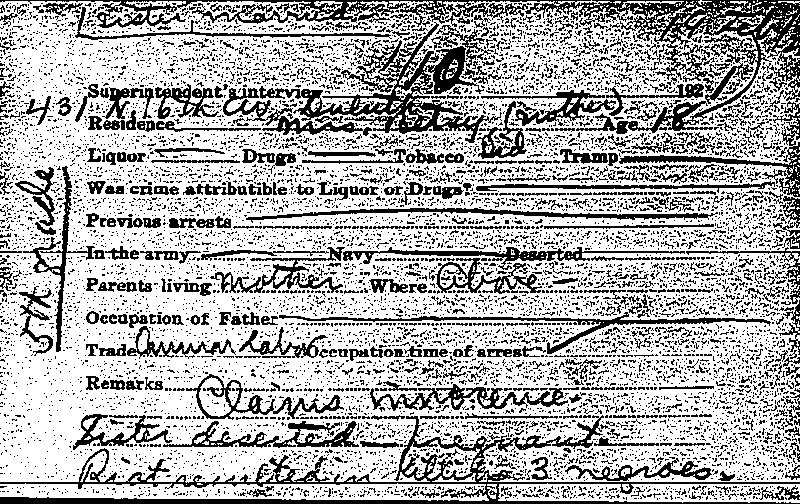 1 Sister, married
1/10
Superintendent's interview 1921
431 N. 16th Av. Duluth
Residence Mrs. Betsy (mother) Age 18
Liquor — Drugs — Tobacco Did Tramp —
Was crime attributible to Liquor or Drugs? —
Previous arrests —
In the army — Navy — Deserted
5th grade
Parents living Mother Where Above —
Occupation of Father —
Trade Common labor Occupation time of arrest ✓
Remarks
Claims innocence.
Sister deserted — pregnant.
Riot resulted in killing 3 negroes.